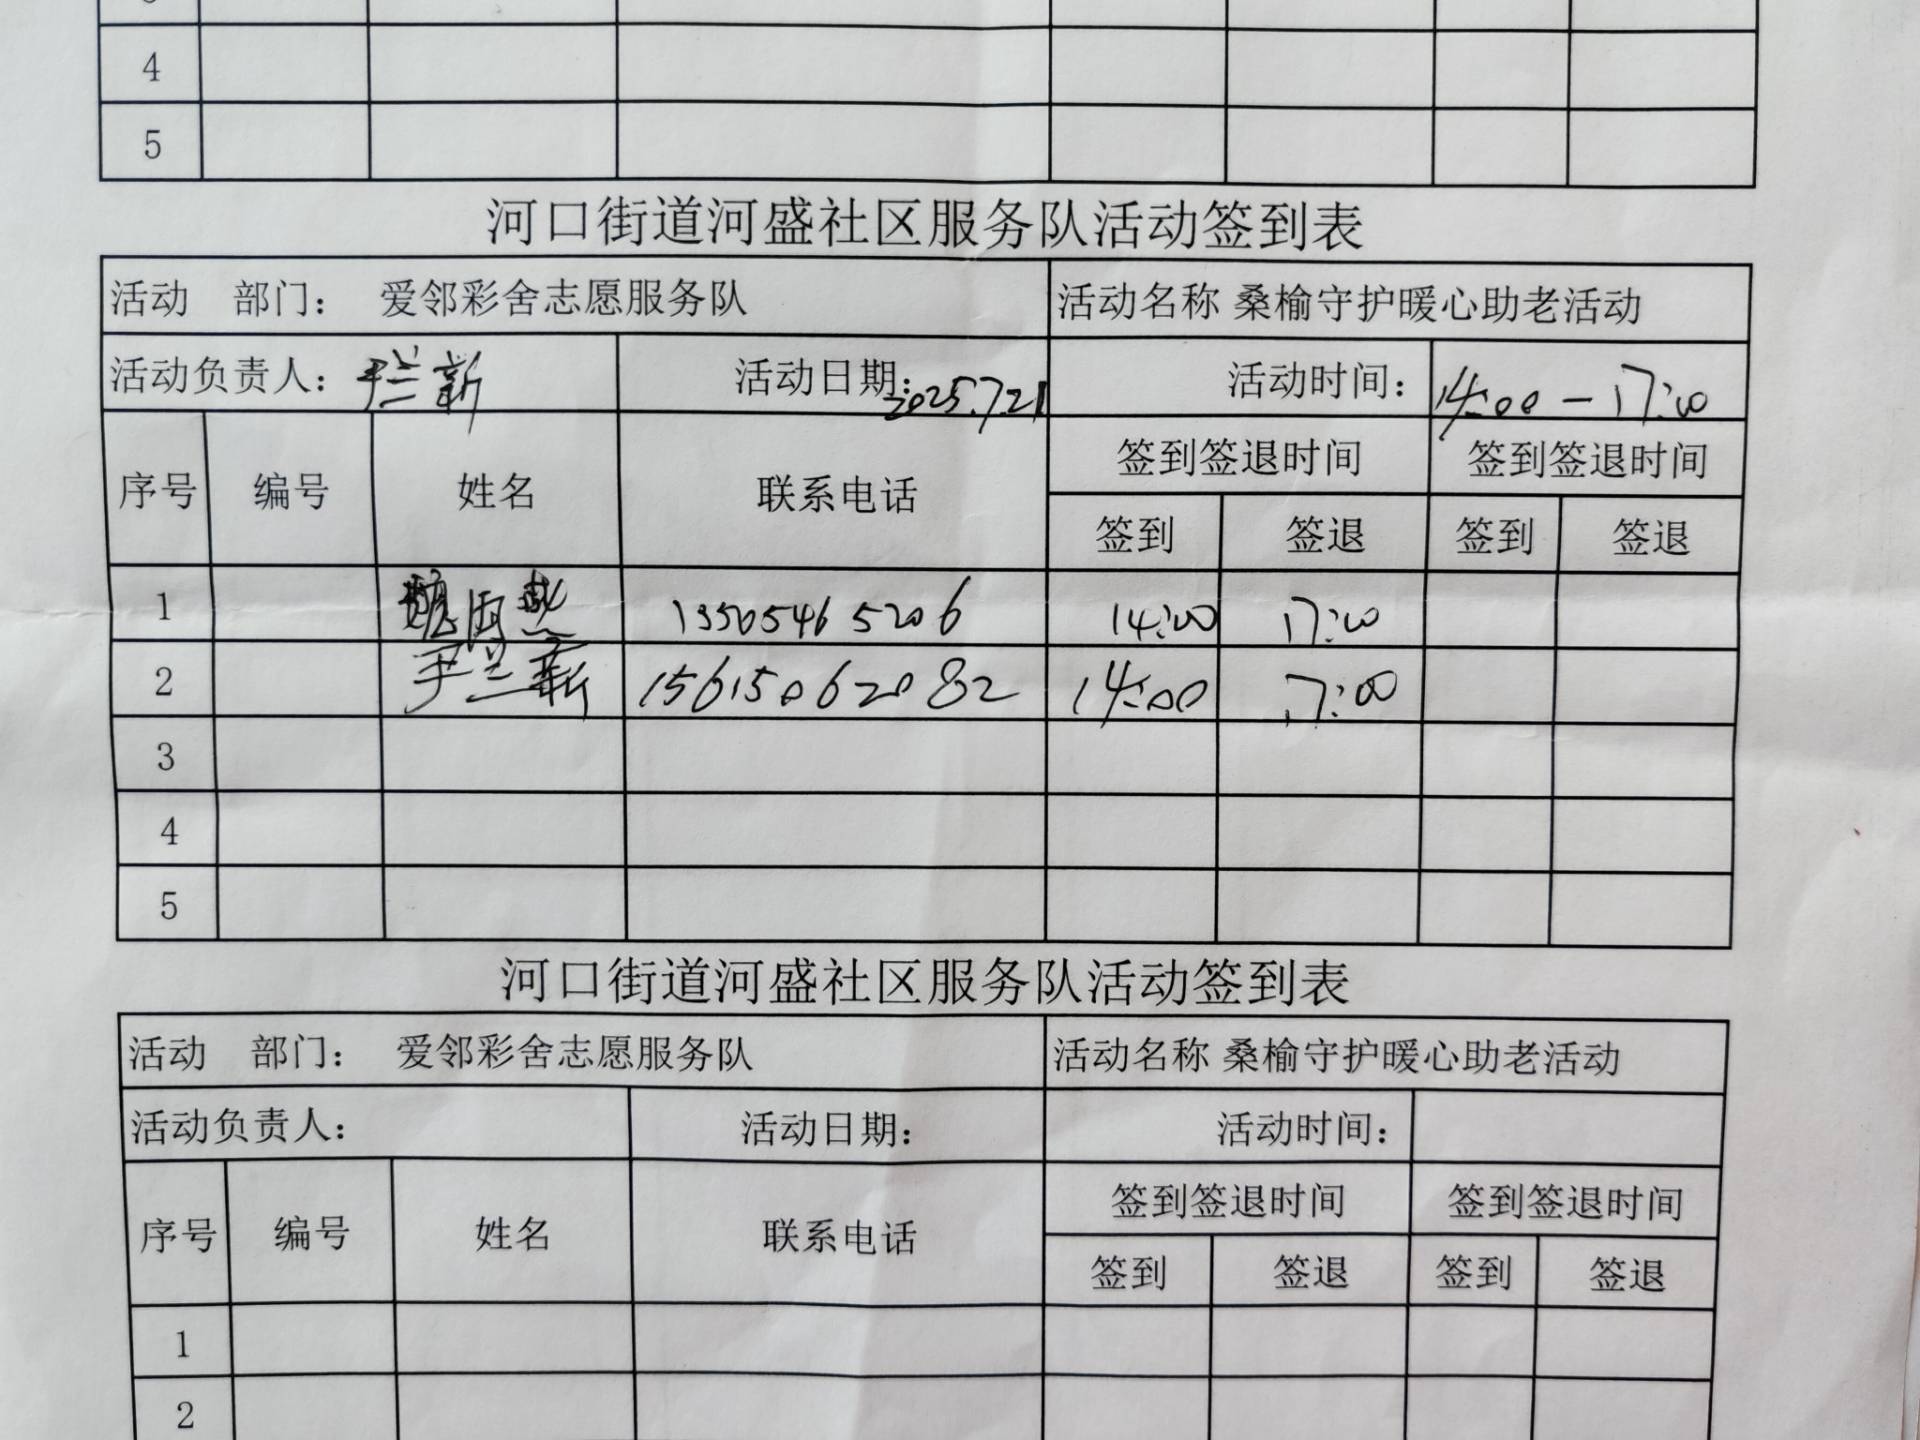 4
5
河口街道河盛社区服务队活动签到表
活动 部门： 爱邻彩舍志愿服务队 活动名称 桑榆守护暖心助老活动
活动负责人：尹兰新 活动日期：2025.7.21 活动时间： 14:00-17:00
序号 编号 姓名 联系电话 签到签退时间 签到签退时间
签到 签退 签到 签退
1 13505465206 14:00 17:00
2 尹兰新 15615062082 14:00 17:00
3
4
5
河口街道河盛社区服务队活动签到表
活动 部门： 爱邻彩舍志愿服务队 活动名称 桑榆守护暖心助老活动
活动负责人： 活动日期： 活动时间：
序号 编号 姓名 联系电话 签到签退时间 签到签退时间
签到 签退 签到 签退
1
2